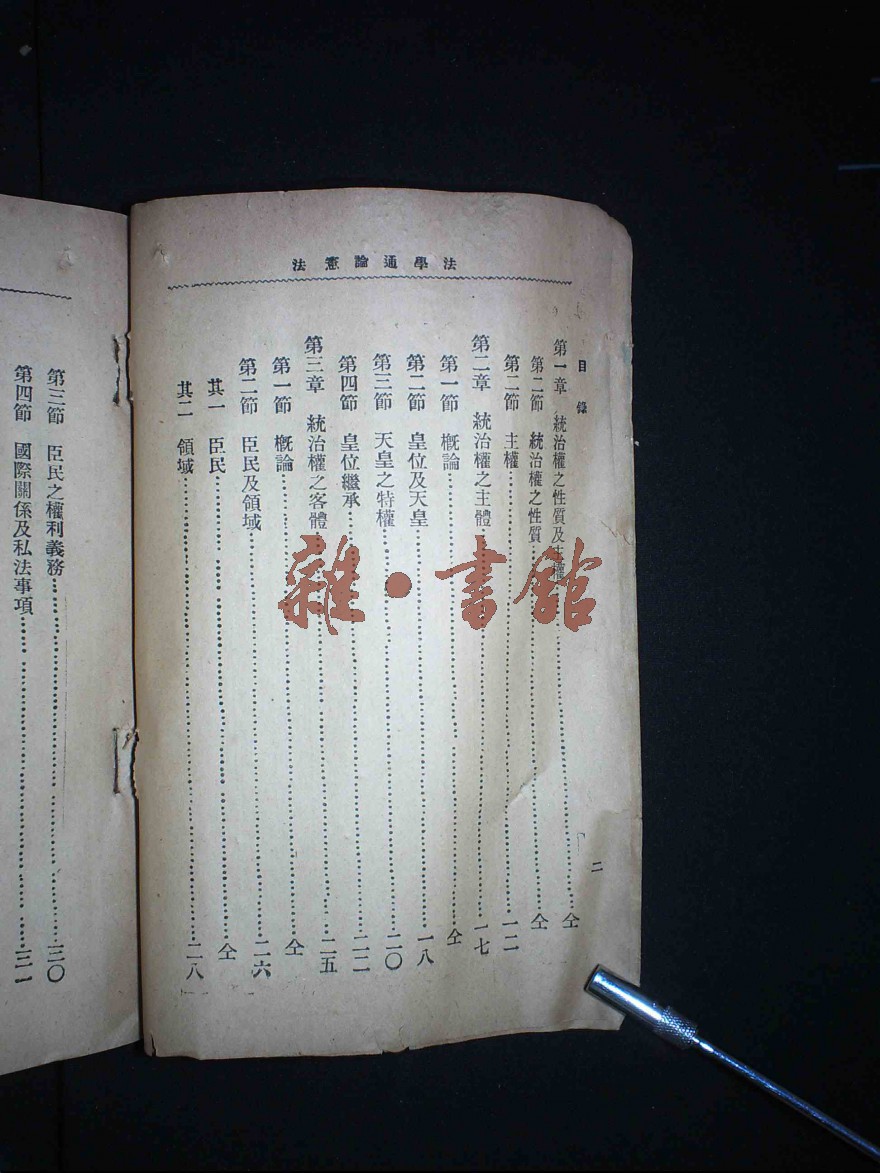 法學通論憲法
目錄 二
第一章 統治權之性質及主權……仝
第二節 統治權之性質……仝
第二節 主權……一二
第二章 統治權之主體……一七
第一節 概論……仝
第二節 皇位及天皇……一八
第三節 天皇之特權……二〇
第四節 皇位繼承……二二
第三章 統治權之客體……二五
第一節 概論……仝
第二節 臣民及領域……二六
其一 臣民……仝
其二 領域……二八
第三節 臣民之權利義務……三〇
第四節 國際關係及私法事項……三一
雜·書館